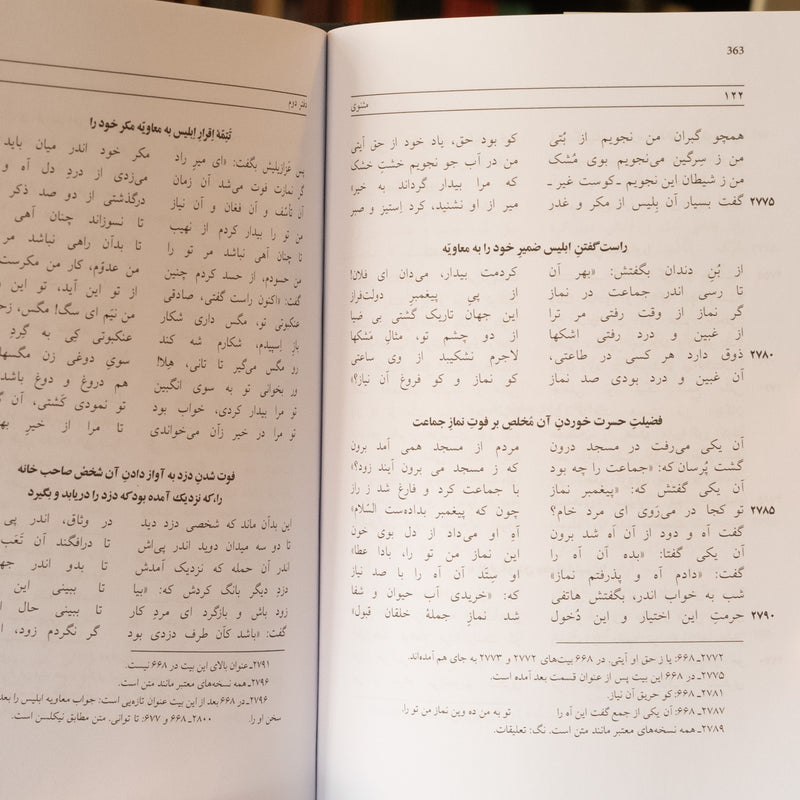 363
۱۲۲
مثنوی
همچو گبران من نجویم از بُتی کو بود حق، یاد خود از حق آیتی
من ز سِرگین می‌نجویم بوی مُشک من در آب جو نجویم خشتِ خشک
من ز شیطان این نجویم ـ کوست غیر ـ که مرا بیدار گرداند به خیر»
۲۷۷۵ گفت بسیار آن بِلیس از مکر و غدر میر از او نشنید، کرد اِستیز و صبر
راست گفتنِ ابلیس ضمیرِ خود را به معاویه
از بُنِ دندان بگفتش: «بهرِ آن کردمت بیدار، می‌دان ای فلان!
تا رسی اندر جماعت در نماز از پیِ پیغمبرِ دولت‌فراز
گر نماز از وقت رفتی مر ترا این جهان تاریک گشتی بی ضیا
از غبین و درد رفتی اشکها از دو چشمِ تو، مثالِ مَشکها
۲۷۸۰ ذوق دارد هر کسی در طاعتی، لاجرم نشکیبد از وی ساعتی
آن غبین و درد بودی صد نماز کو نماز و کو فروغِ آن نیاز؟»
فضیلتِ حسرت خوردنِ آن مُخلص بر فوتِ نمازِ جماعت
آن یکی می‌رفت در مسجد درون مردم از مسجد همی آمد برون
گشت پُرسان که: «جماعت را چه بود که ز مسجد می برون آیند زود؟»
آن یکی گفتش که: «پیغمبر نماز با جماعت کرد و فارغ شد ز راز
۲۷۸۵ تو کجا در می‌رَوی ای مردِ خام؟ چون که پیغمبر بداده‌ست السّلام»
گفت آه و دود از آن آه شد برون آهِ او می‌داد از دل بوی خون
آن یکی گفتا: «بده آن آه را این نمازِ من تو را، بادا عطا»
گفت: «دادم آه و پذرفتم نماز» او سِتَد آن آه را با صد نیاز
شب به خواب اندر، بگفتش هاتفی که: «خریدی آبِ حیوان و شفا
۲۷۹۰ حرمتِ این اختیار و این دُخول شد نمازِ جملهٔ خلقان قبول»
۲۷۷۲ـ ۶۶۸: یا ز حق او آیتی. در ۶۶۸ بیت‌های ۲۷۷۲ و ۲۷۷۳ به جای هم آمده‌اند.
۲۷۷۵ـ در ۶۶۸ این بیت پس از عنوان قسمت بعد آمده است.
۲۷۸۱ـ ۶۶۸: کو حریق آن نیاز.
۲۷۸۷ـ ۶۶۸: آن یکی از جمع گفت این آه را تو به من ده وین نماز من تو را.
۲۷۸۹ـ همه نسخه‌های معتبر مانند متن است. نگ: تعلیقات.
دفتر دوم
تَتِمّهٔ اِقرارِ اِبلیس به معاویّه مکر خود را
پس عَزازیلیش بگفت: «ای میرِ راد مکر خود اندر میان باید
گر نمازت فوت می‌شد آن زمان می‌زدی از دردِ دل آه و
آن تأسّف و آن فغان و آن نیاز درگذشتی از دو صد ذکر
من تو را بیدار کردم از نهیب تا نسوزاند چنان آهی
تا چنان آهی نباشد مر تو را تا بدآن راهی نباشد مر
من حسودم، از حسد کردم چنین من عدوّم، کارِ من مکرست
گفت: «اکنون راست گفتی، صادقی از تو این آید، تو این
عنکبوتی تو، مگس داری شکار من نیَم ای سگ! مگس،
بازِ اِسپیدم، شکارم شه کند عنکبوتی کِی به گِردِ
رو مگس می‌گیر تا تانی، هِلا! سویِ دوغی زن مگسها
ور بخوانی تو به سوی انگبین هم دروغ و دوغ باشد
تو مرا بیدار کردی، خواب بود تو نمودی کَشتی، آن
تو مرا در خیر زآن می‌خواندی تا مرا از خیرِ
فوت شدنِ دزد به آواز دادنِ آن شخصْ صاحب خانه
را، که نزدیک آمده بود که دزد را دریابد و بگیرد
این بدآن ماند که شخصی دزد دید در وثاق، اندر پی
تا دو سه میدان دوید اندر پی‌اش تا درافگند آن تَعَب
اندر آن حمله که نزدیک آمدش تا بدو اندر
دزدِ دیگر بانگ کردش که: «بیا تا ببینی این
زود باش و بازگرد ای مردِ کار تا ببینی حالِ
گفت: «باشد کآن طرف دزدی بود گر نگردم زود،
۲۷۹۱ـ عنوان بالای این بیت در ۶۶۸ نیست.
۲۷۹۶ـ همه نسخه‌های معتبر مانند متن است.
۲۷۹۶ـ در ۶۶۸ بعد از این بیت عنوان تازه‌یی است: جواب معاویه ابلیس را بعد
سخن او را. ۲۸۰۰ـ ۶۶۸ و ۶۷۷: تا توانی. متن مطابق نیکلسن است.